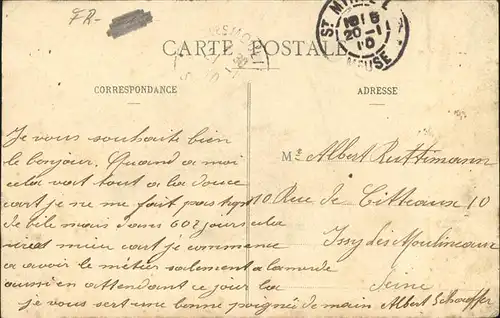 FR-
CARTE POSTALE
ST MIHIEL
20-1
10
MEUSE
CORRESPONDANCE
ADRESSE
Je vous souhaite bien
le bonjour. Quand a moi
cela vat tout a la douce
cart je ne me fait pas trop
de bile mais dans 602 jours cela
vieut mieu cart je commence
a avoir le métier salement a la merde
aussi en attendant ce jour la
je vous sert une bonne poignée de main Albert Schaeffer
Mr Albert Ruttimann
10 Rue de Citteaux 10
Issy les Moulineaux
Seine